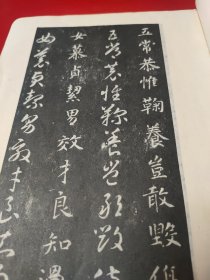 五常恭惟鞠養豈敢毀
五常恭惟鞠養豈敢毀
女慕貞絜男效才良知過
女慕貞絜男效才良知